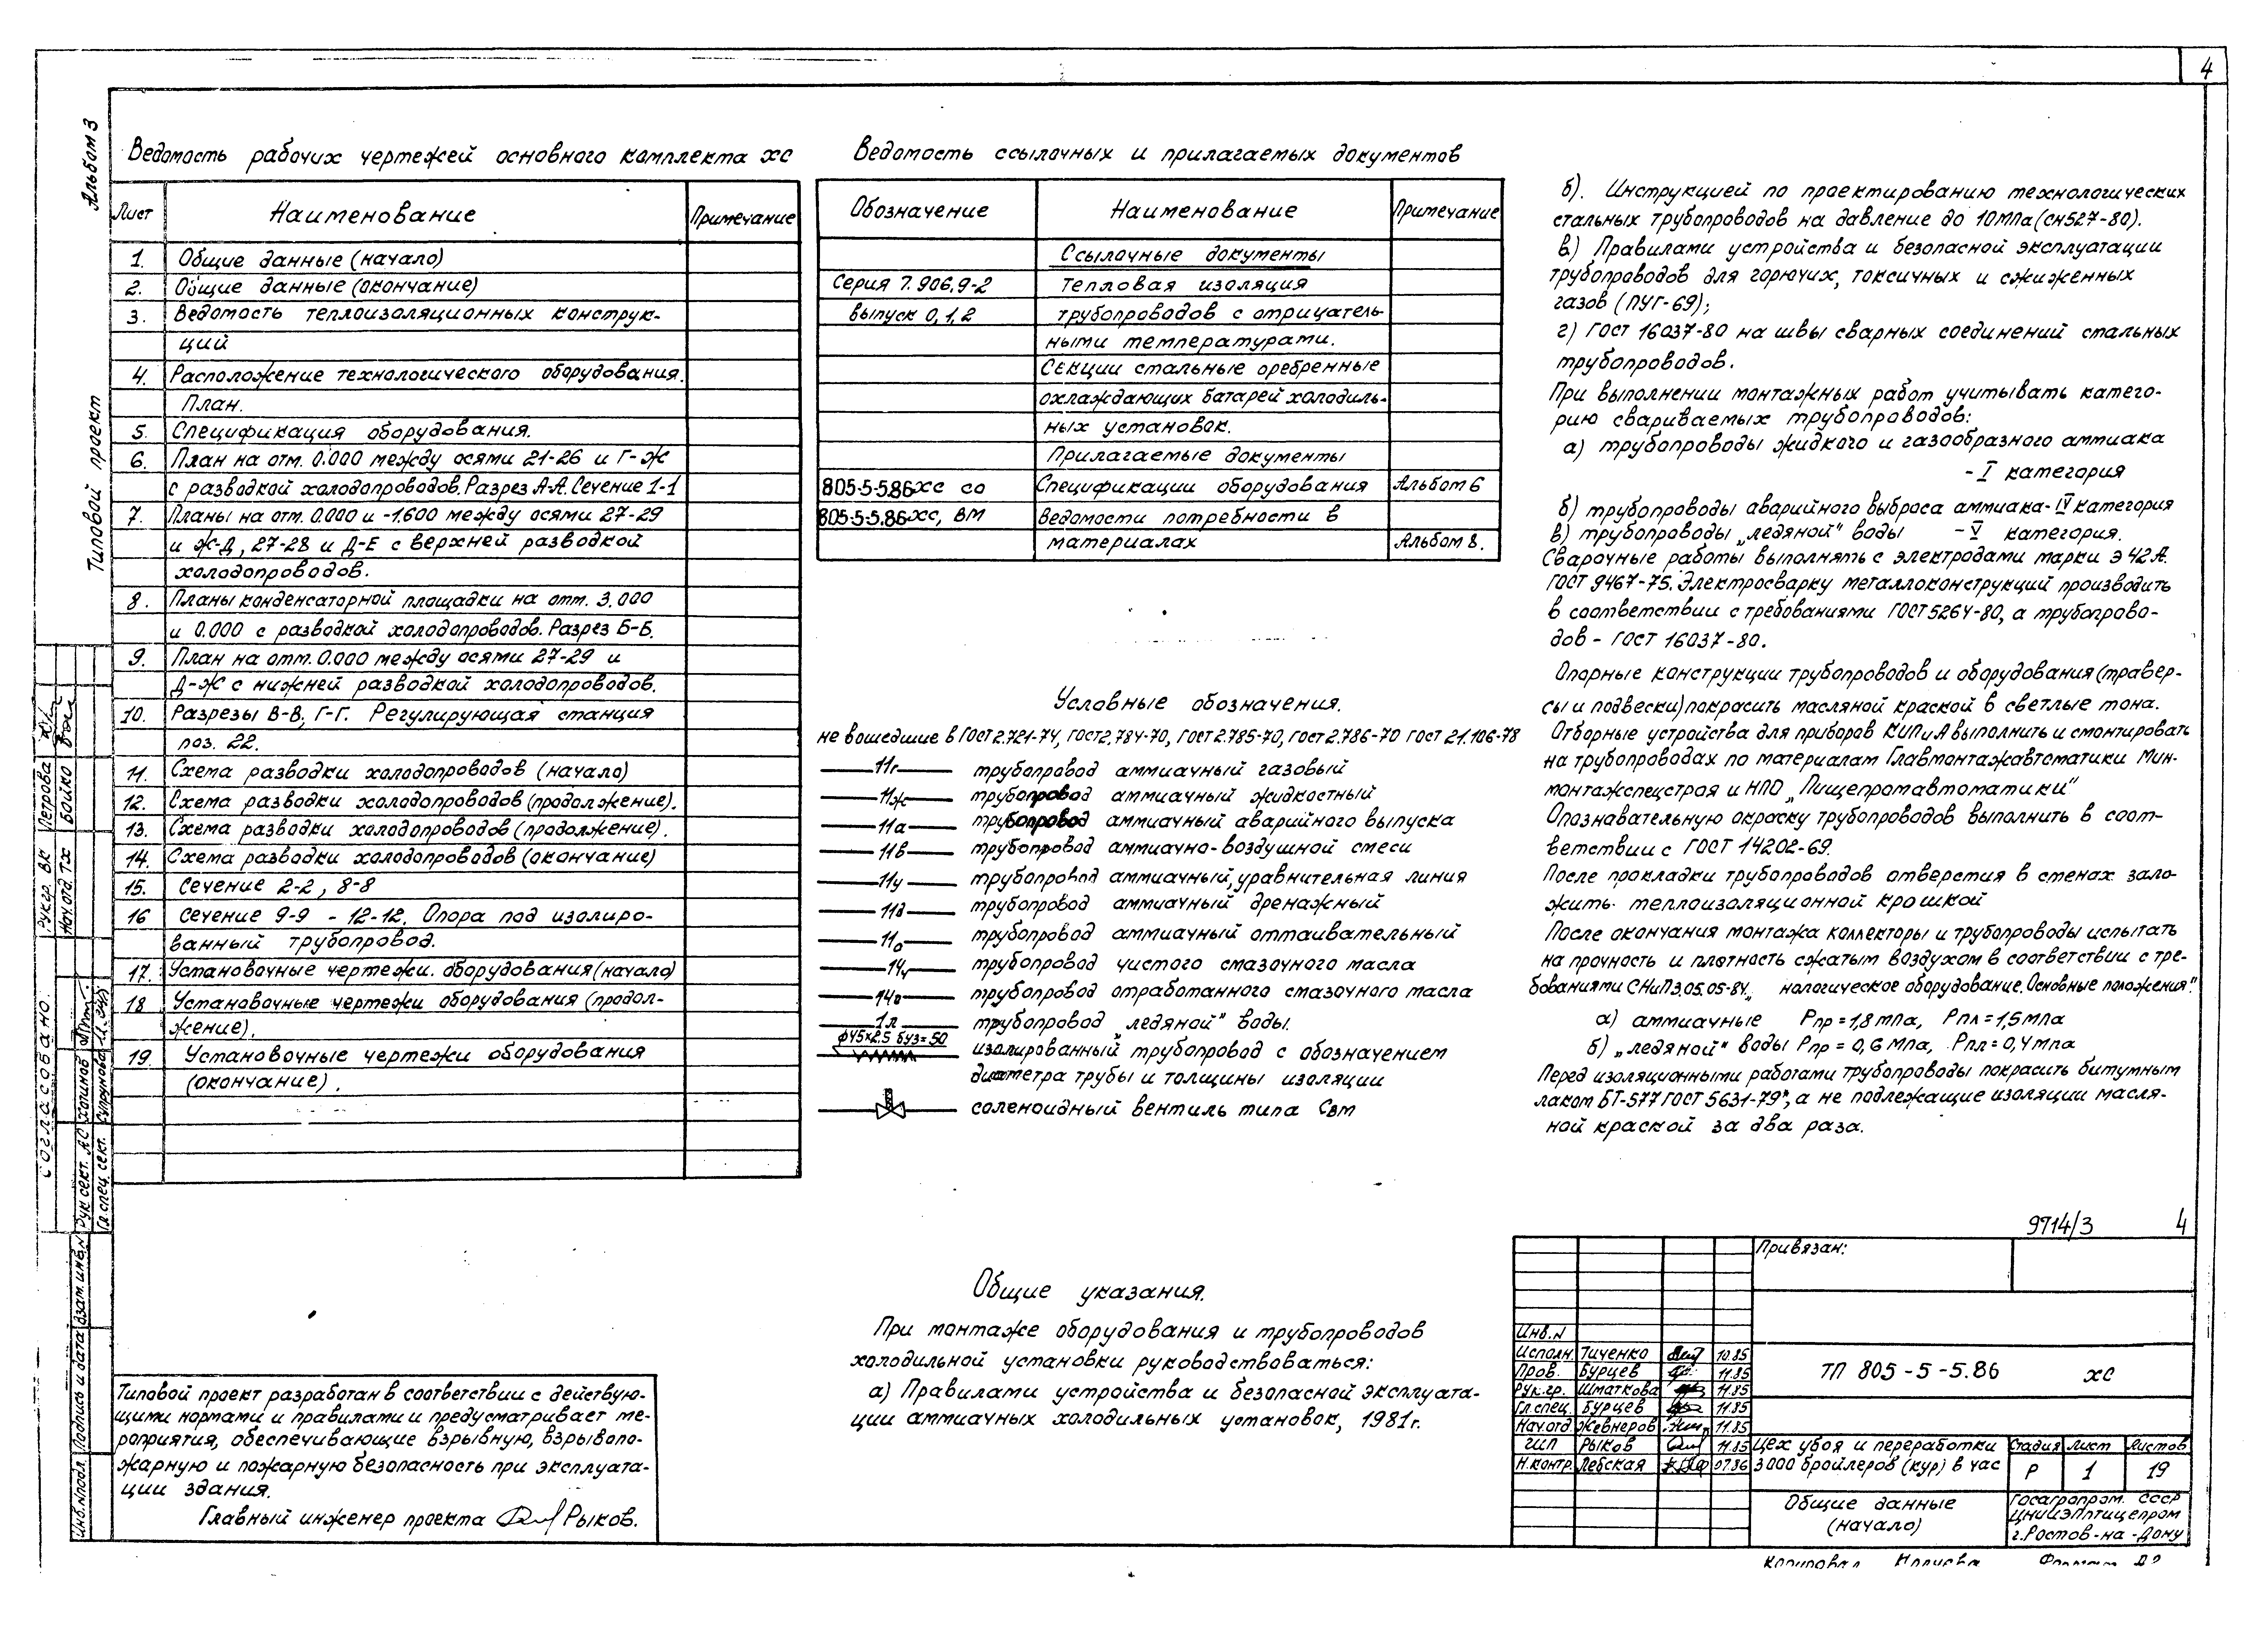 4
Альбом 3
Типовой проект
Ведомость рабочих чертежей основного комплекта ХС
Лист Наименование Примечание
1. Общие данные (начало)
2. Общие данные (окончание)
3. Ведомость теплоизоляционных конструк-
ций
4. Расположение технологического оборудования.
План.
5. Спецификация оборудования.
6. План на отм. 0.000 между осями 21-26 и Г-Ж
с разводкой холодопроводов. Разрез А-А. Сечение 1-1
7. Планы на отм. 0.000 и -1.600 между осями 27-29
и Ж-Д, 27-28 и Д-Е с верхней разводкой
холодопроводов.
8. Планы конденсаторной площадки на отм. 3.000
и 0.000 с разводкой холодопроводов. Разрез Б-Б.
9. План на отм. 0.000 между осями 27-29 и
Д-Ж с нижней разводкой холодопроводов.
10. Разрезы В-В, Г-Г. Регулирующая станция
поз. 22.
11. Схема разводки холодопроводов (начало)
12. Схема разводки холодопроводов (продолжение).
13. Схема разводки холодопроводов (продолжение).
14. Схема разводки холодопроводов (окончание)
15. Сечение 2-2, 8-8
16 Сечение 9-9 - 12-12. Опора под изолиро-
ванный трубопровод.
17. Установочные чертежи. оборудования (начало)
18 Установочные чертежи оборудования (продол-
жение).
19. Установочные чертежи оборудования
(окончание).
Ведомость ссылочных и прилагаемых документов
Обозначение Наименование Примечание
Ссылочные документы
Серия 7.906.9-2 Тепловая изоляция
выпуск 0,1,2 трубопроводов с отрицатель-
ными температурами.
Секции стальные оребренные
охлаждающих батарей холодиль-
ных установок.
Прилагаемые документы
805-5-5.86-ХС СО Спецификации оборудования Альбом 6
805-5-5.86-ХС, ВМ Ведомости потребности в
материалах Альбом 8.
Условные обозначения.
не вошедшие в ГОСТ 2.721-74, ГОСТ 2.784-70, ГОСТ 2.785-70, ГОСТ 2.786-70 ГОСТ 21.106-78
11г трубопровод аммиачный газовый
11ж трубопровод аммиачный жидкостный
11а трубопровод аммиачный аварийного выпуска
11в трубопровод аммиачно-воздушной смеси
11у трубопровод аммиачный, уравнительная линия
11д трубопровод аммиачный дренажный
11о трубопровод аммиачный оттаивательный
14ч трубопровод чистого смазочного масла
14о трубопровод отработанного смазочного масла
1л трубопровод „ледяной" воды.
ф45х2.5 биз=50 изолированный трубопровод с обозначением
диаметра трубы и толщины изоляции
соленоидный вентиль типа Свм
Общие указания.
При монтаже оборудования и трубопроводов
холодильной установки руководствоваться:
а) Правилами устройства и безопасной эксплуата-
ции аммиачных холодильных установок, 1981г.
б). Инструкцией по проектированию технологических
стальных трубопроводов на давление до 10 МПа (СН527-80).
в) Правилами устройства и безопасной эксплуатации
трубопроводов для горючих, токсичных и сжиженных
газов (ПУГ-69);
г) ГОСТ 16037-80 на швы сварных соединений стальных
трубопроводов.
При выполнении монтажных работ учитывать катего-
рию свариваемых трубопроводов:
а) трубопроводы жидкого и газообразного аммиака
- I категория
б) трубопроводы аварийного выброса аммиака - IV категория
в) трубопроводы „ледяной" воды - V категория.
Сварочные работы выполнять с электродами марки Э 42 А.
ГОСТ 9467-75. Электросварку металлоконструкций производить
в соответствии с требованиями ГОСТ 5264-80, а трубопрово-
дов - ГОСТ 16037-80.
Опорные конструкции трубопроводов и оборудования (травер-
сы и подвески) покрасить масляной краской в светлые тона.
Отборные устройства для приборов КИПиА выполнить и смонтировать
на трубопроводах по материалам Главмонтажавтоматики Мин-
монтажспецстроя и НПО „Пищепромавтоматики"
Опознавательную окраску трубопроводов выполнить в соот-
ветствии с ГОСТ 14202-69.
После прокладки трубопроводов отверстия в стенах зало-
жить теплоизоляционной крошкой
После окончания монтажа коллекторы и трубопроводы испытать
на прочность и плотность сжатым воздухом в соответствии с тре-
бованиями СНиП 3.05.05-84 „ нологическое оборудование. Основные положения".
а) аммиачные Рпр = 1,8 мпа, Рпл = 1,5 мпа
б) „ледяной" воды Рпр = 0,6 мпа, Рпл = 0,4 мпа
Перед изоляционными работами трубопроводы покрасить битумным
лаком БТ-577 ГОСТ 5631-79", а не подлежащие изоляции масля-
ной краской за два раза.
Типовой проект разработан в соответствии с действую-
щими нормами и правилами и предусматривает ме-
роприятия, обеспечивающие взрывную, взрывопо-
жарную и пожарную безопасность при эксплуата-
ции здания.
Главный инженер проекта Рыков.
Согласовано
Рук. гр. ВК Петрова
Нач. отд. ТХ Бойко
Рук. сект. АС
Гл. спец. сект.
Инв. № подл. Подпись и дата Взам. инв. №
9714/3 4
Привязан:
Инв. N
Исполн. Тиченко 10.85
Пров. Бурцев 11.85
Рук. гр. Шматкова 11.85
Гл. спец. Бурцев 11.85
Нач. отд. Жевнеров 11.85
ГИП Рыков 11.85
Н. контр. Лебская 07.86
ТП 805-5-5.86 ХС
Цех убоя и переработки
3000 бройлеров (кур) в час
Стадия Лист Листов
Р 1 19
Общие данные
(начало)
Госагропром. СССР
ЦНИИЭПптицепром
г. Ростов-на-Дону
Копировал Формат А2